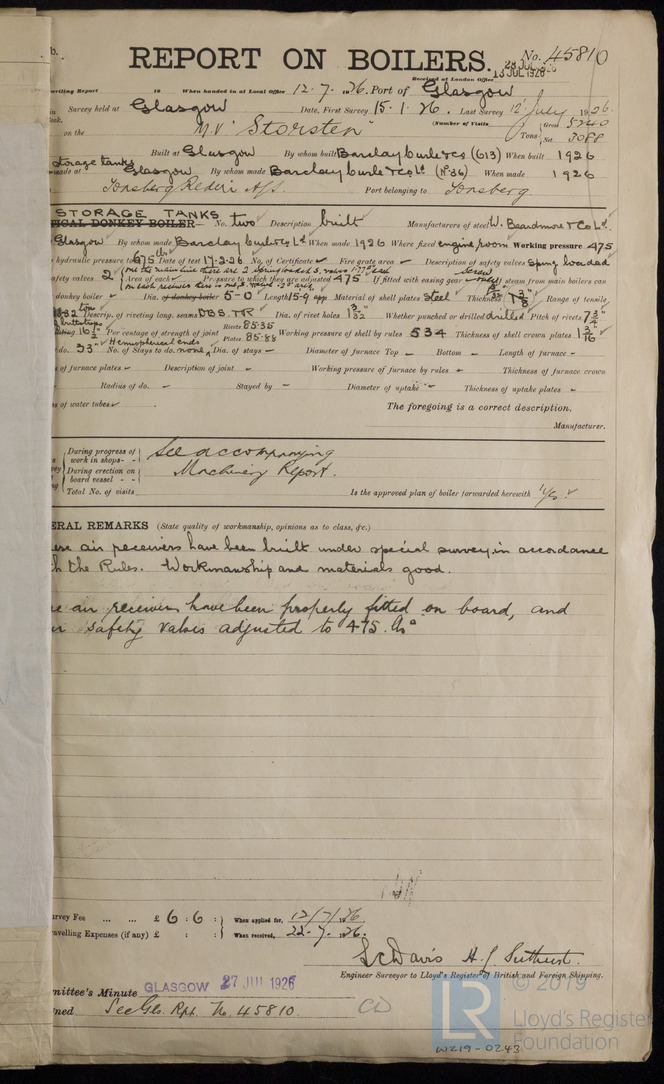 REPORT ON BOILERS.
No. 45810
13 JUL 1926
Received at London Office
Writing Report 19 When handed in at Local Office 12.7.1926. Port of Glasgow
Survey held at Glasgow Date, First Survey 15.1.26. Last Survey 12 July 1926
on the M.V "Storsten" (Number of Visits Tons Gross 5240 Net 3088
Built at Glasgow By whom built Barclay Curle & Co (613) When built 1926
Storage tanks made at Glasgow By whom made Barclay Curle & Co Ld (No 36) When made 1926
Tonsberg Rederi A/S. Port belonging to Tonsberg
STORAGE TANKS
ICAL DONKEY BOILER No. two Description built Manufacturers of steel W. Beardmore & Co Ld.
Glasgow By whom made Barclay Curle & Co Ld When made 1926 Where fixed engine room Working pressure 475
hydraulic pressure to 675 lbs Date of test 17.2.26 No. of Certificate Fire grate area Description of safety valves Spring loaded
afety valves 2 Area of each Pressure to which they are adjusted 475 If fitted with easing gear screw steam from main boilers can
donkey boiler Dia. of donkey boiler 5-0 Length 15-9 app Material of shell plates Steel Thickness Range of tensile
Descrip. of riveting long. seams DBS. TR Dia. of rivet holes 1 3/32" Whether punched or drilled drilled Pitch of rivets 7 3/4"
Per centage of strength of joint Rivets 85.35 Plates 85.88 Working pressure of shell by rules 534 Thickness of shell crown plates 1 3/16"
do. 33" Hemispherical ends No. of Stays to do. none Dia. of stays - Diameter of furnace Top - Bottom - Length of furnace -
s of furnace plates - Description of joint - Working pressure of furnace by rules - Thickness of furnace crown
Radius of do. - Stayed by - Diameter of uptake - Thickness of uptake plates -
s of water tubes
The foregoing is a correct description,
Manufacturer.
During progress of work in shops - -
During erection on board vessel - - -
Total No. of visits
See accompanying
Machinery Report.
Is the approved plan of boiler forwarded herewith
ERAL REMARKS (State quality of workmanship, opinions as to class, &c.)
ese air receivers have been built under special survey in accordance
h the Rules. Workmanship and materials good.
e air receivers have been properly fitted on board, and
ir safety valves adjusted to 475 lbs
urvey Fee ... ... £ 6 : 6 : When applied for, 12/7/1926
ravelling Expenses (if any) £ : : When received, 22.7.1926.
L C Davis H. J. Sutherst.
Engineer Surveyor to Lloyd's Register of British and Foreign Shipping.
mittee's Minute GLASGOW 27 JUL 1926
ned See Gls. Rpt. No. 45810.
LR
© 2019
Lloyd's Register
Foundation
W219-0243